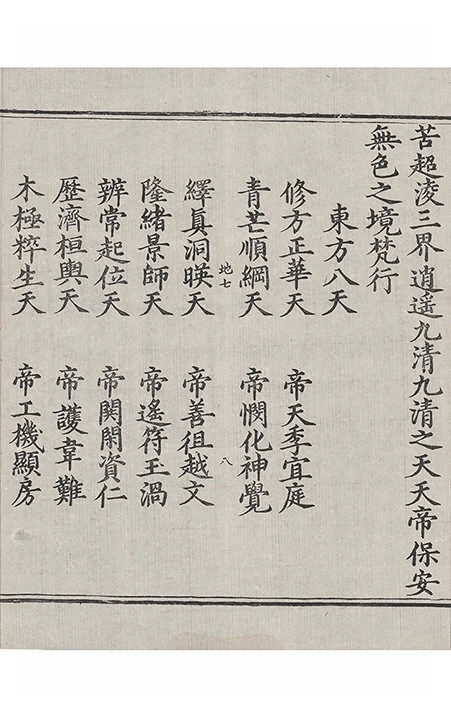 苦超淩三界逍遥九清九清之天天帝保安
無色之境梵行
東方八天
修方正華天 帝天季宜庭
青芒順綱天 帝憫化神覺
地七 八
繹真洞暎天 帝善徂越文
隆緒景師天 帝遙符玉渦
辨常起位天 帝関閑資仁
歷濟桓輿天 帝護韋難
木極粹生天 帝工機顯房